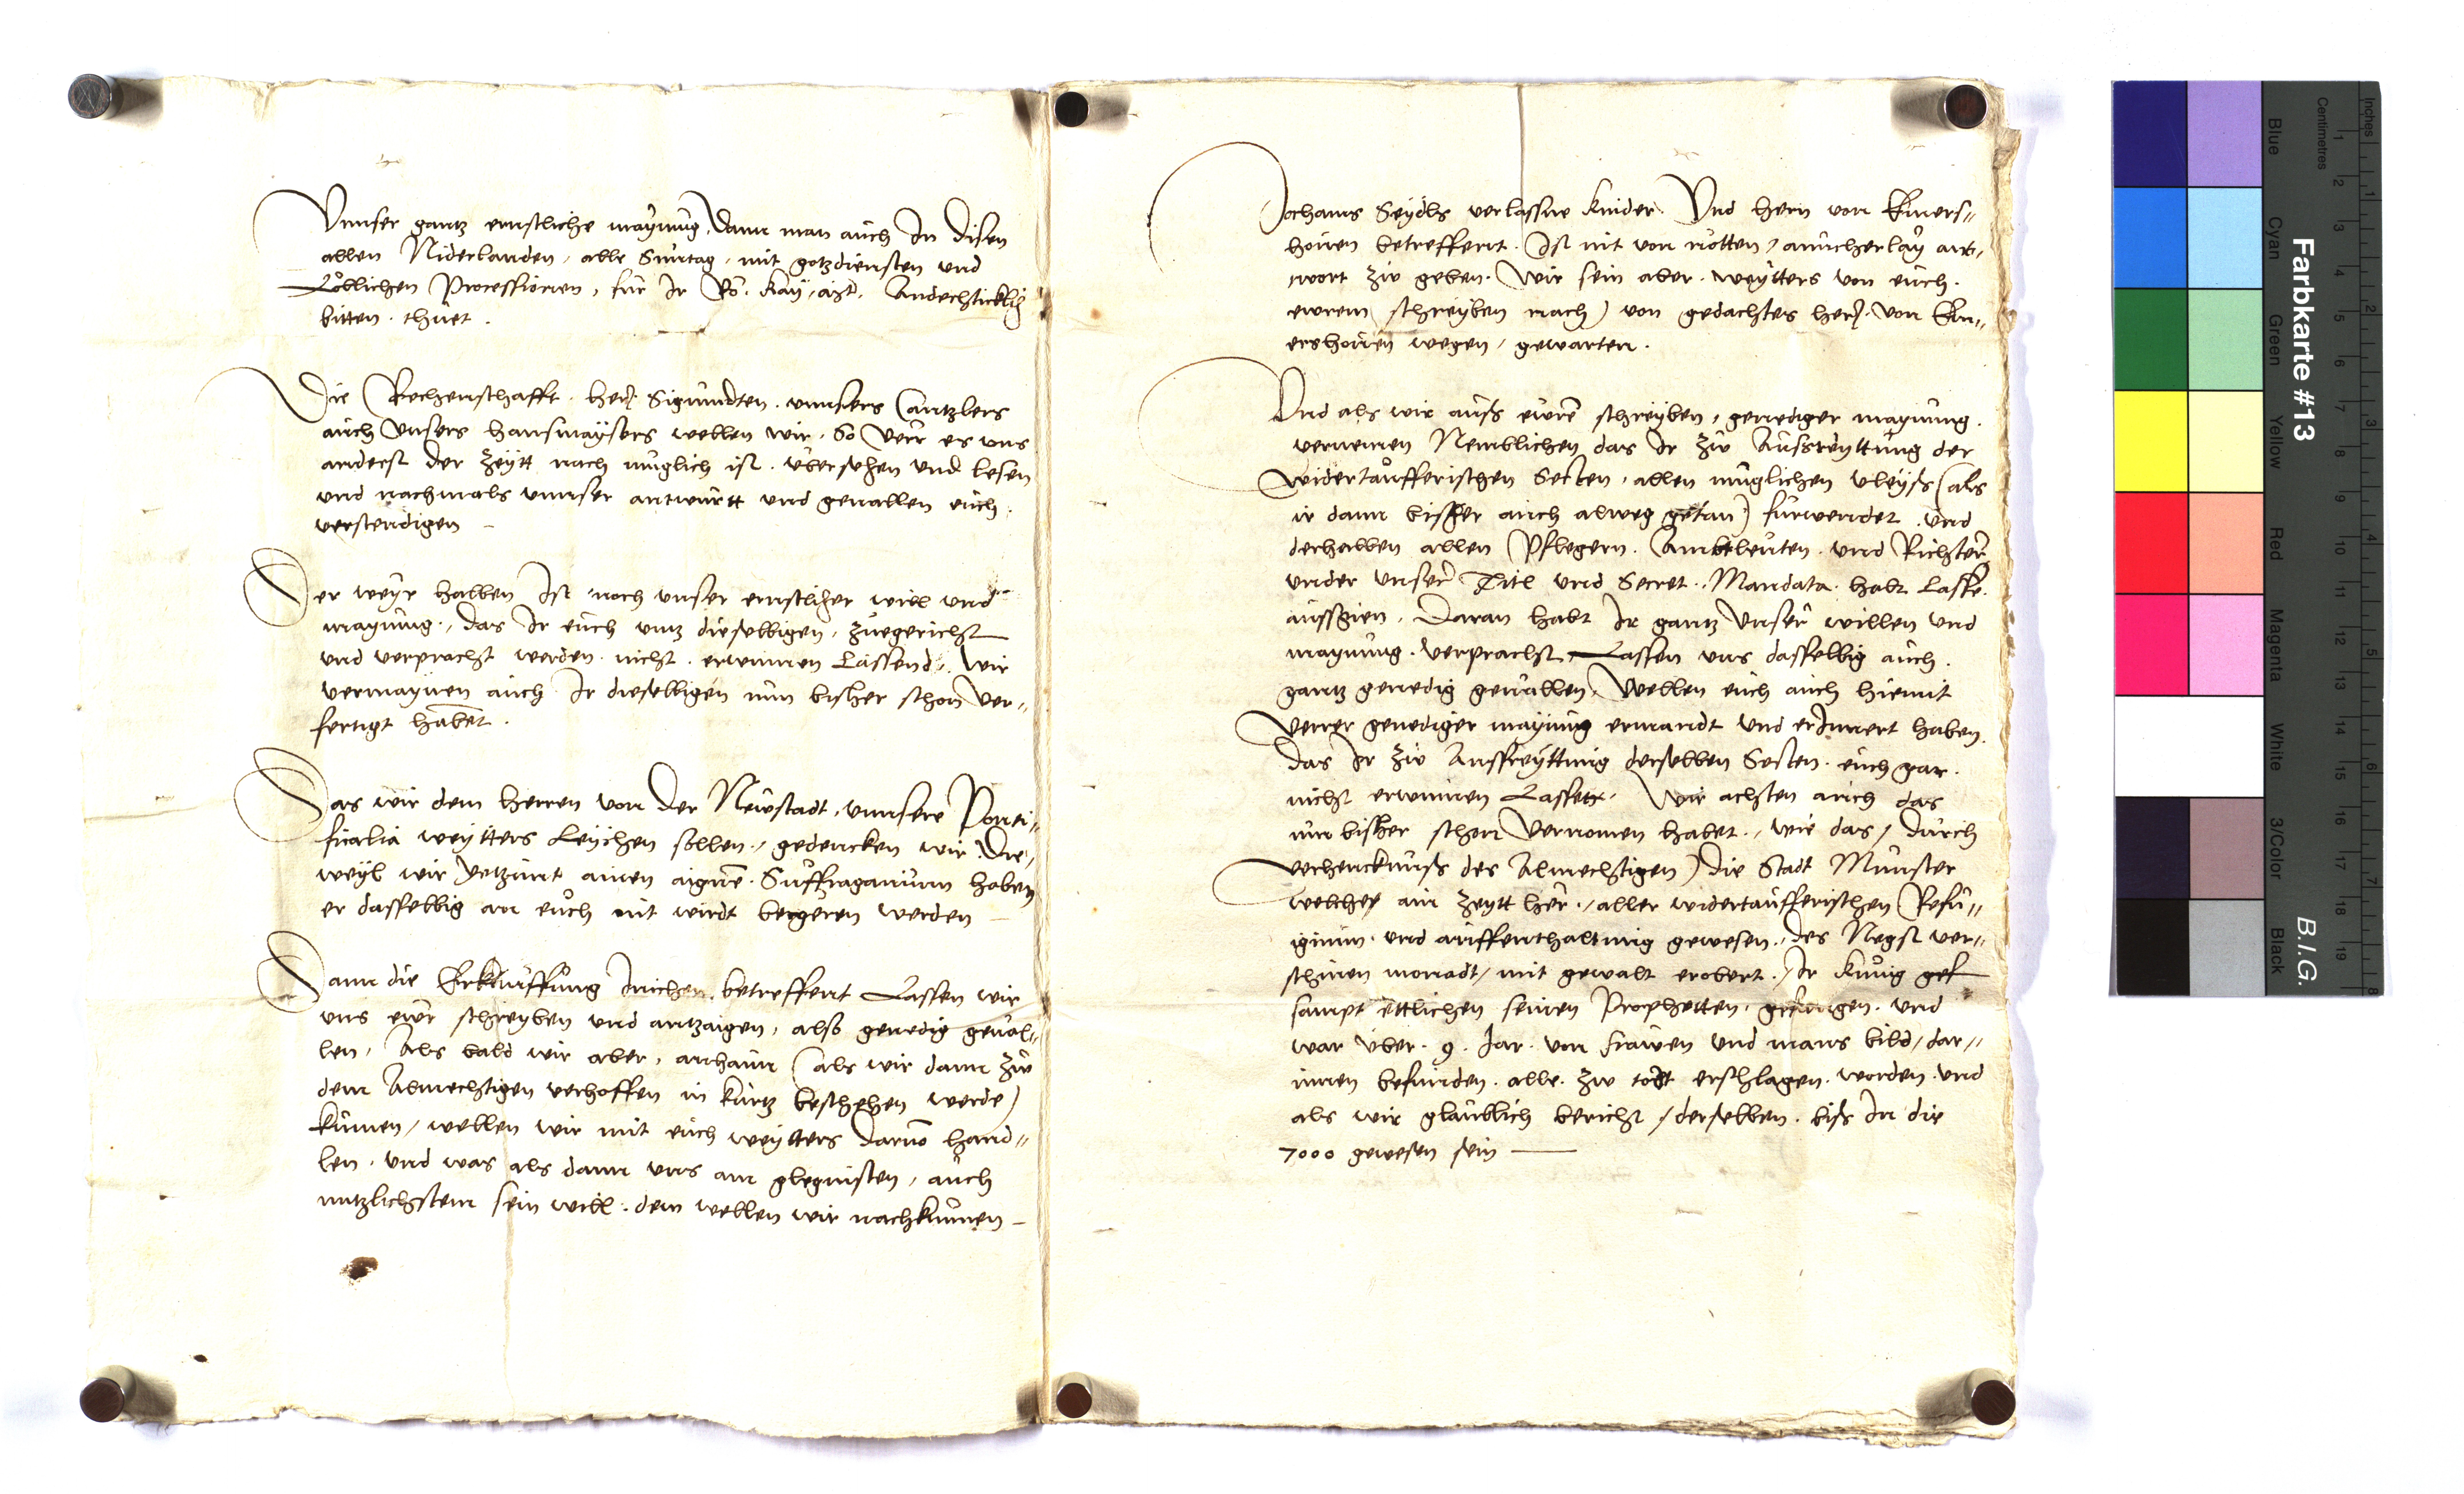 Vnnser gantz ernstliche maynung, dann man auch In disen
allen Niderlanden, alle Suntag, mit gotzdiensten vnd
Loblichen Processionen, für Ir Ro. Kay. Mt. Andechticklig
bitten thuet.
Die Rechenschafft her Sigmundten vnnsers Cantzlers
auch vnsers hausmaysers wellen wir, So verr es vns
anderst der zeytt nach muglich ist, vbersehen vnd lesen
vnd nachmals vnnser antwurtt vnd geuallen euch
verstendigen
Der weyr halben Ist noch vnser ernstlicher will vnd
maynung, das Ir euch vmb dieselbigen, zuegericht
vnd verpracht werden nicht erwinnen Lassend, Wir
vermaynen auch Ir dieselbigen nun bisher schon ver-
fertigt habet.
Das wir dem herren von der Newstadt, vnnsere Ponti-
ficalia weytters Leychen sollen, gedencken wir Die-
weyl wir yetzunt ainen aignen Suffraganium haben
er dasselbig an euch nit wirdt begeren werden
Dann die Erkhauffung Innichen betreffent Lassen wir
vns ewr schreyben vnd antzaigen, also genedig geual-
len, Als bald wir aber, anhaim (als wir dann zu
dem Almechtigen verhoffen in kurtz beschehen werde)
kumen, wellen wir mit euch weytters daruo hand-
len, vnd was als dann vns am glegnisten, auch
nutzlichstem sein will, dem wellen wir nachkumen
Jochams Seydls verlassne kinder Vnd hern von Emers-
hofen betreffent. Ist nit von nötten, ainicherlay ant-
wort zu geben. Wir sein aber weytters von euch
ewrem schreyben nach) von gedachtes her von Em-
ershofen wegen, gewarten.
Vnd als wir auss ewrem schreyben, genediger maynung
vernemen Nemblichen das Ir zu Aussreyttung der
widertaufferischen Secten, allen muglichen vleyss (als
ir dann bisher auch alweg getan) furwendet vnd
derhalben allen Pflegern. Ambtleuten vnd Richtern
vnder vnser Titl vnd Secret. Mandata habt Lasse
aussgien. Daran habt Ir gantz vnser willen vnd
maynung verpracht, Lassen vns dasselbig auch
gantz genedig geuallen, Wellen euch auch hiemit
verrer genediger maynung ermandt vnd erInnert haben
das Ir zu Aussreyttung derselben Secten euch gar
nicht erwinnen Lasset. Wir achten auch das
nun bisher schon vernomen habet, wie das, durch
verhencknuss des Almechtigen) die Stadt Munster
welcher ain zeytt her, aller widertaufferischen Refu-
gium vnd auffenthaltung gewesen, des Negst ver-
schinen monadt, mit gewalt erobert, Ir kunig gef
sampt ettlichen seinen Prophetten, gefangen vnd
war vber 9. Jar von frawen vnd mans bild, dar-
innen befunden alle zu todt erschlagen worden vnd
als wir glaublich bericht, derselben biss In die
7000 gewesen sein
Farbkarte #13
B.I.G.
Inches
Centimetres
Blue
Cyan
Green
Yellow
Red
Magenta
White
3/Color
Black